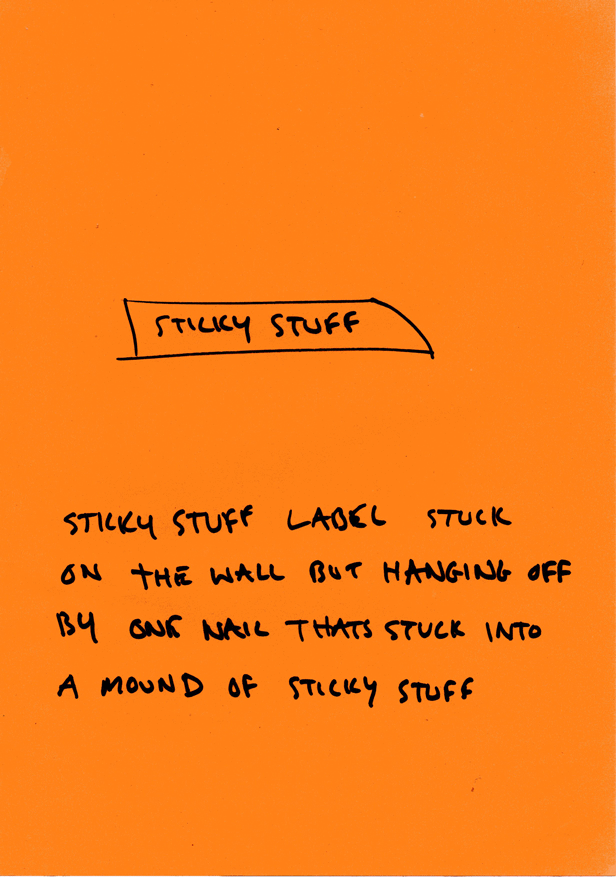 STICKY STUFF
STICKY STUFF LABEL STUCK
ON THE WALL BUT HANGING OFF
BY ONE NAIL THATS STUCK INTO
A MOUND OF STICKY STUFF